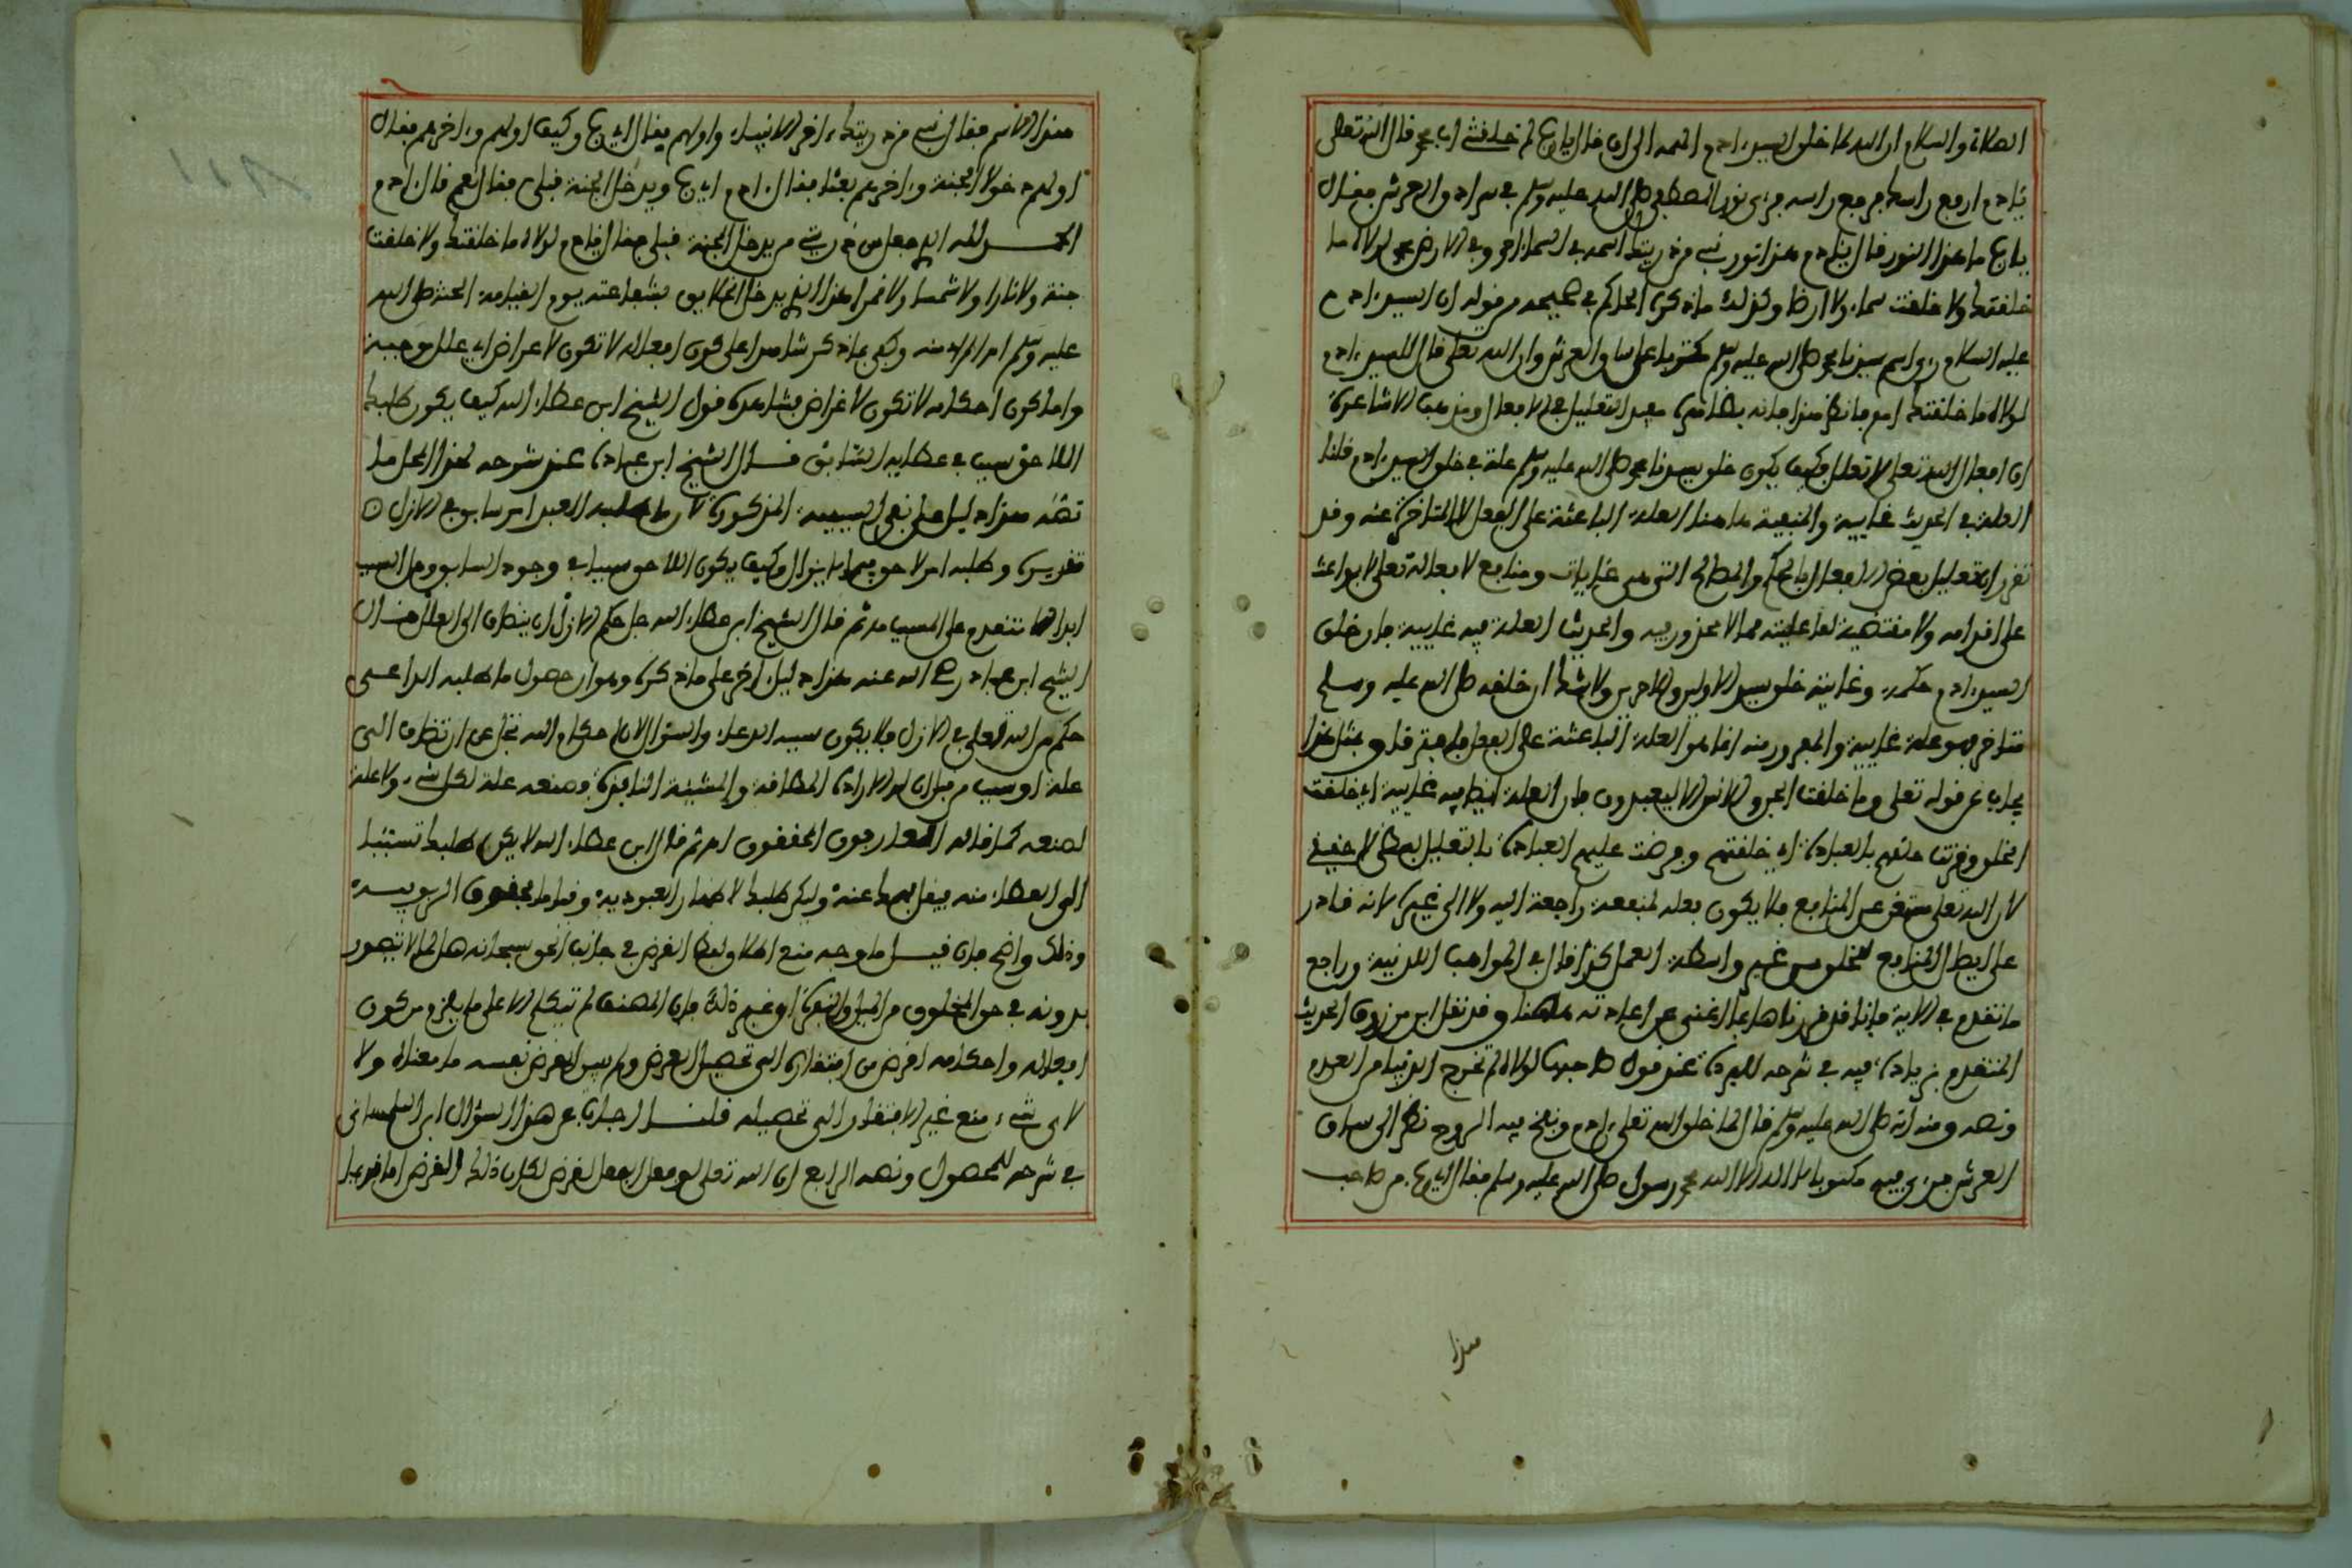 الصلاة والسلام ان الله لما خلق السيد ءادم الهمه الى ان قال يا رب لم خلقتني ابا محمد قال الله تعلى
يا ءادم ارفع راسك فرفع راسه فرءى نور المصطفى صلى الله عليه وسلم في سرادق العرش فقال
يا رب ما هذا النور قال يا ءادم هذا نور نبي من ذريتك اسمه في السماء احمد وفي الارض محمد لولاه ما
خلقتك ولا خلقت سماء ولا ارضا وكذلك ما ذكره الحاكم في صحيحه من قوله ان السيد ءادم
عليه السلام رءى اسم سيدنا محمد صلى الله عليه وسلم مكتوبا على ساق العرش وان الله تعلى قال للسيد ءادم
لولاه ما خلقتك فانظر هذا فانه بظاهره يفيد التعليل في الافعال ومذهب الاشاعرة
ان افعال الله تعلى لا تعلل فكيف يكون خلق سيدنا محمد صلى الله عليه وسلم علة في خلق السيد ءادم قلنا
العلة في الحديث غايية والمنفية هاهنا العلة الباعثة على الفعل لا المتاخرة عنه وقد
تقرر ان تعليل بعض الافعال بالحكم والمصالح التي هي غايات ومنافع لافعاله تعلى لا بواعث
على اقدامه ولا مقتضية لفاعليته مما لا محذور فيه والحديث العلة فيه غايية فان خلق
السيد ءادم حكمته وغايته خلق سيد الاولين والاخرين ولا شك ان خلقه صلى الله عليه وسلم
متاخر فهو علة غايية والمحذور منه انما هو العلة الباعثة على الفعل فلم يفترقا وبمثل هذا
يجاب عن قوله تعلى وما خلقت الجن والانس الا ليعبدون فان العلة ايضا فيه غايية اي خلقت
الخلق وقرنت خلقهم بالعبادة اي خلقتهم وفرضت عليهم العبادة فالتعليل لفظي لا حقيقي
لان الله تعلى مستغن عن المنافع فلا يكون فعله لمنفعة راجعة اليه ولا الى غيره لانه قادر
على ايصال المنافع للخلق من غير واسطة العمل كذا قال في المواهب اللدنية وراجع
ما تقدم في الاية فاننا قد قررناها بما اغنى عن اعادته هاهنا وقد نقل ابن مرزوق الحديث
المتقدم بزيادة فيه في شرحه للبردة عند قول صاحبها لولاه لم تخرج الدنيا من العدم
ونصه ومنه انه صلى الله عليه وسلم قال لما خلق الله تعلى ءادم ونفخ فيه الروح نظر الى ساق
العرش فرءى فيه مكتوبا لا اله الا الله محمد رسول صلى الله عليه وسلم فقال اي رب من صاحب
هذا
هذا الاسم فقال نبي من ذريتك ءاخر الانبياء واولهم فقال اي رب وكيف اولهم وءاخرهم فقال
اولهم دخولا الجنة وءاخرهم بعثا فقال ءادم اي رب ويدخل الجنة قبلي فقال نعم قال ءادم
الحمد لله الذي جعل من ذريتي من يدخل الجنة قبلي فقال يا ءادم لولاه ما خلقتك ولا خلقت
جنة ولا نارا ولا شمسا ولا قمرا هذا الذي يدخل الخلايق بشفاعته يوم القيامة الجنة صلى الله
عليه وسلم اه المراد منه وكفى بما ذكر شاهدا على كون افعاله لا تكون لاغراض اي علل موجبة
واما كون احكامه لا تكون لاغراض فشاهده قول الشيخ ابن عطاء الله كيف يكون طلبك
اللاحق سببا في عطايه السابق قال الشيخ ابن عباد عند شرحه لهذا المحل ما
نصه هذا دليل على نفي السببية المذكورة لان ما طلبه العبد امر سابق في الازل
تقديره وطلبه امر لاحق فيما لا يزال وكيف يكون اللاحق سببا في وجود السابق وهل السبب
ابدا الا متقدم على المسبب ثم قال الشيخ ابن عطاء الله جل حكم الازل ان ينضاف الى العلل قال
الشيخ ابن عباد رضي الله عنه هذا دليل ءاخر على ما ذكره وهو ان حصول ما طلبه الداعي
حكم من الله تعلى في الازل فلا يكون سببه الدعاء والسؤال لان احكام الله تجل عن ان تضاف الى
علة او سبب فان له الارادة المطلقة والمشيئة النافذة فصنعه علة لكل شيء ولا علة
لصنعه كما قاله العارفون المحققون اه ثم قال ابن عطاء الله لا يكن طلبك تسببا
الى العطاء منه فيقل فهمك عنه وليكن طلبك لاظهار العبودية وقياما بحقوق الربوبية
وذلك واضح فان قيل ما وجه منع اطلاق لفظ الغرض في جانب الحق سبحانه هل لما لا يتصور
بدونه في حق المخلوق من الميل والنفرة او غير ذلك فان المصنف لم يتكلم الا على ما يلزم من كون
افعاله واحكامه لغرض من افتقاره الى تحصيل الغرض ولم يبين الغرض نفسه ما معناه ولا
لاي شيء منع غير الافتقار الى تحصيله قلنا اجاب عن هذا السؤال ابن التلمساني
في شرحه للمحصول ونصه الرابع ان الله تعلى لو فعل الفعل لغرض لكان ذلك الغرض اما قديما